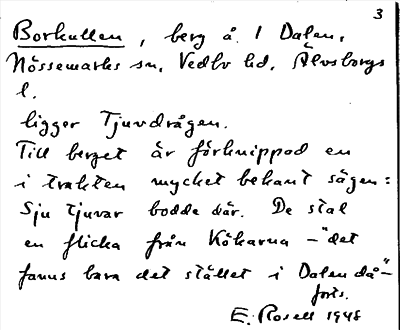 3
Borkullen, berg å 1 Dalen,
Nössemarks sn, Vedbo hd, Älvsborgs
l.
ligger Tjuvdrågen.
Till berget är förknippad en
i trakten mycket bekant sägen:
Sju tjuvar bodde där. De stal
en flicka från Kökarna – "det
fanns bara det stället i Dalen då" –
forts.
E. Rosell 1948